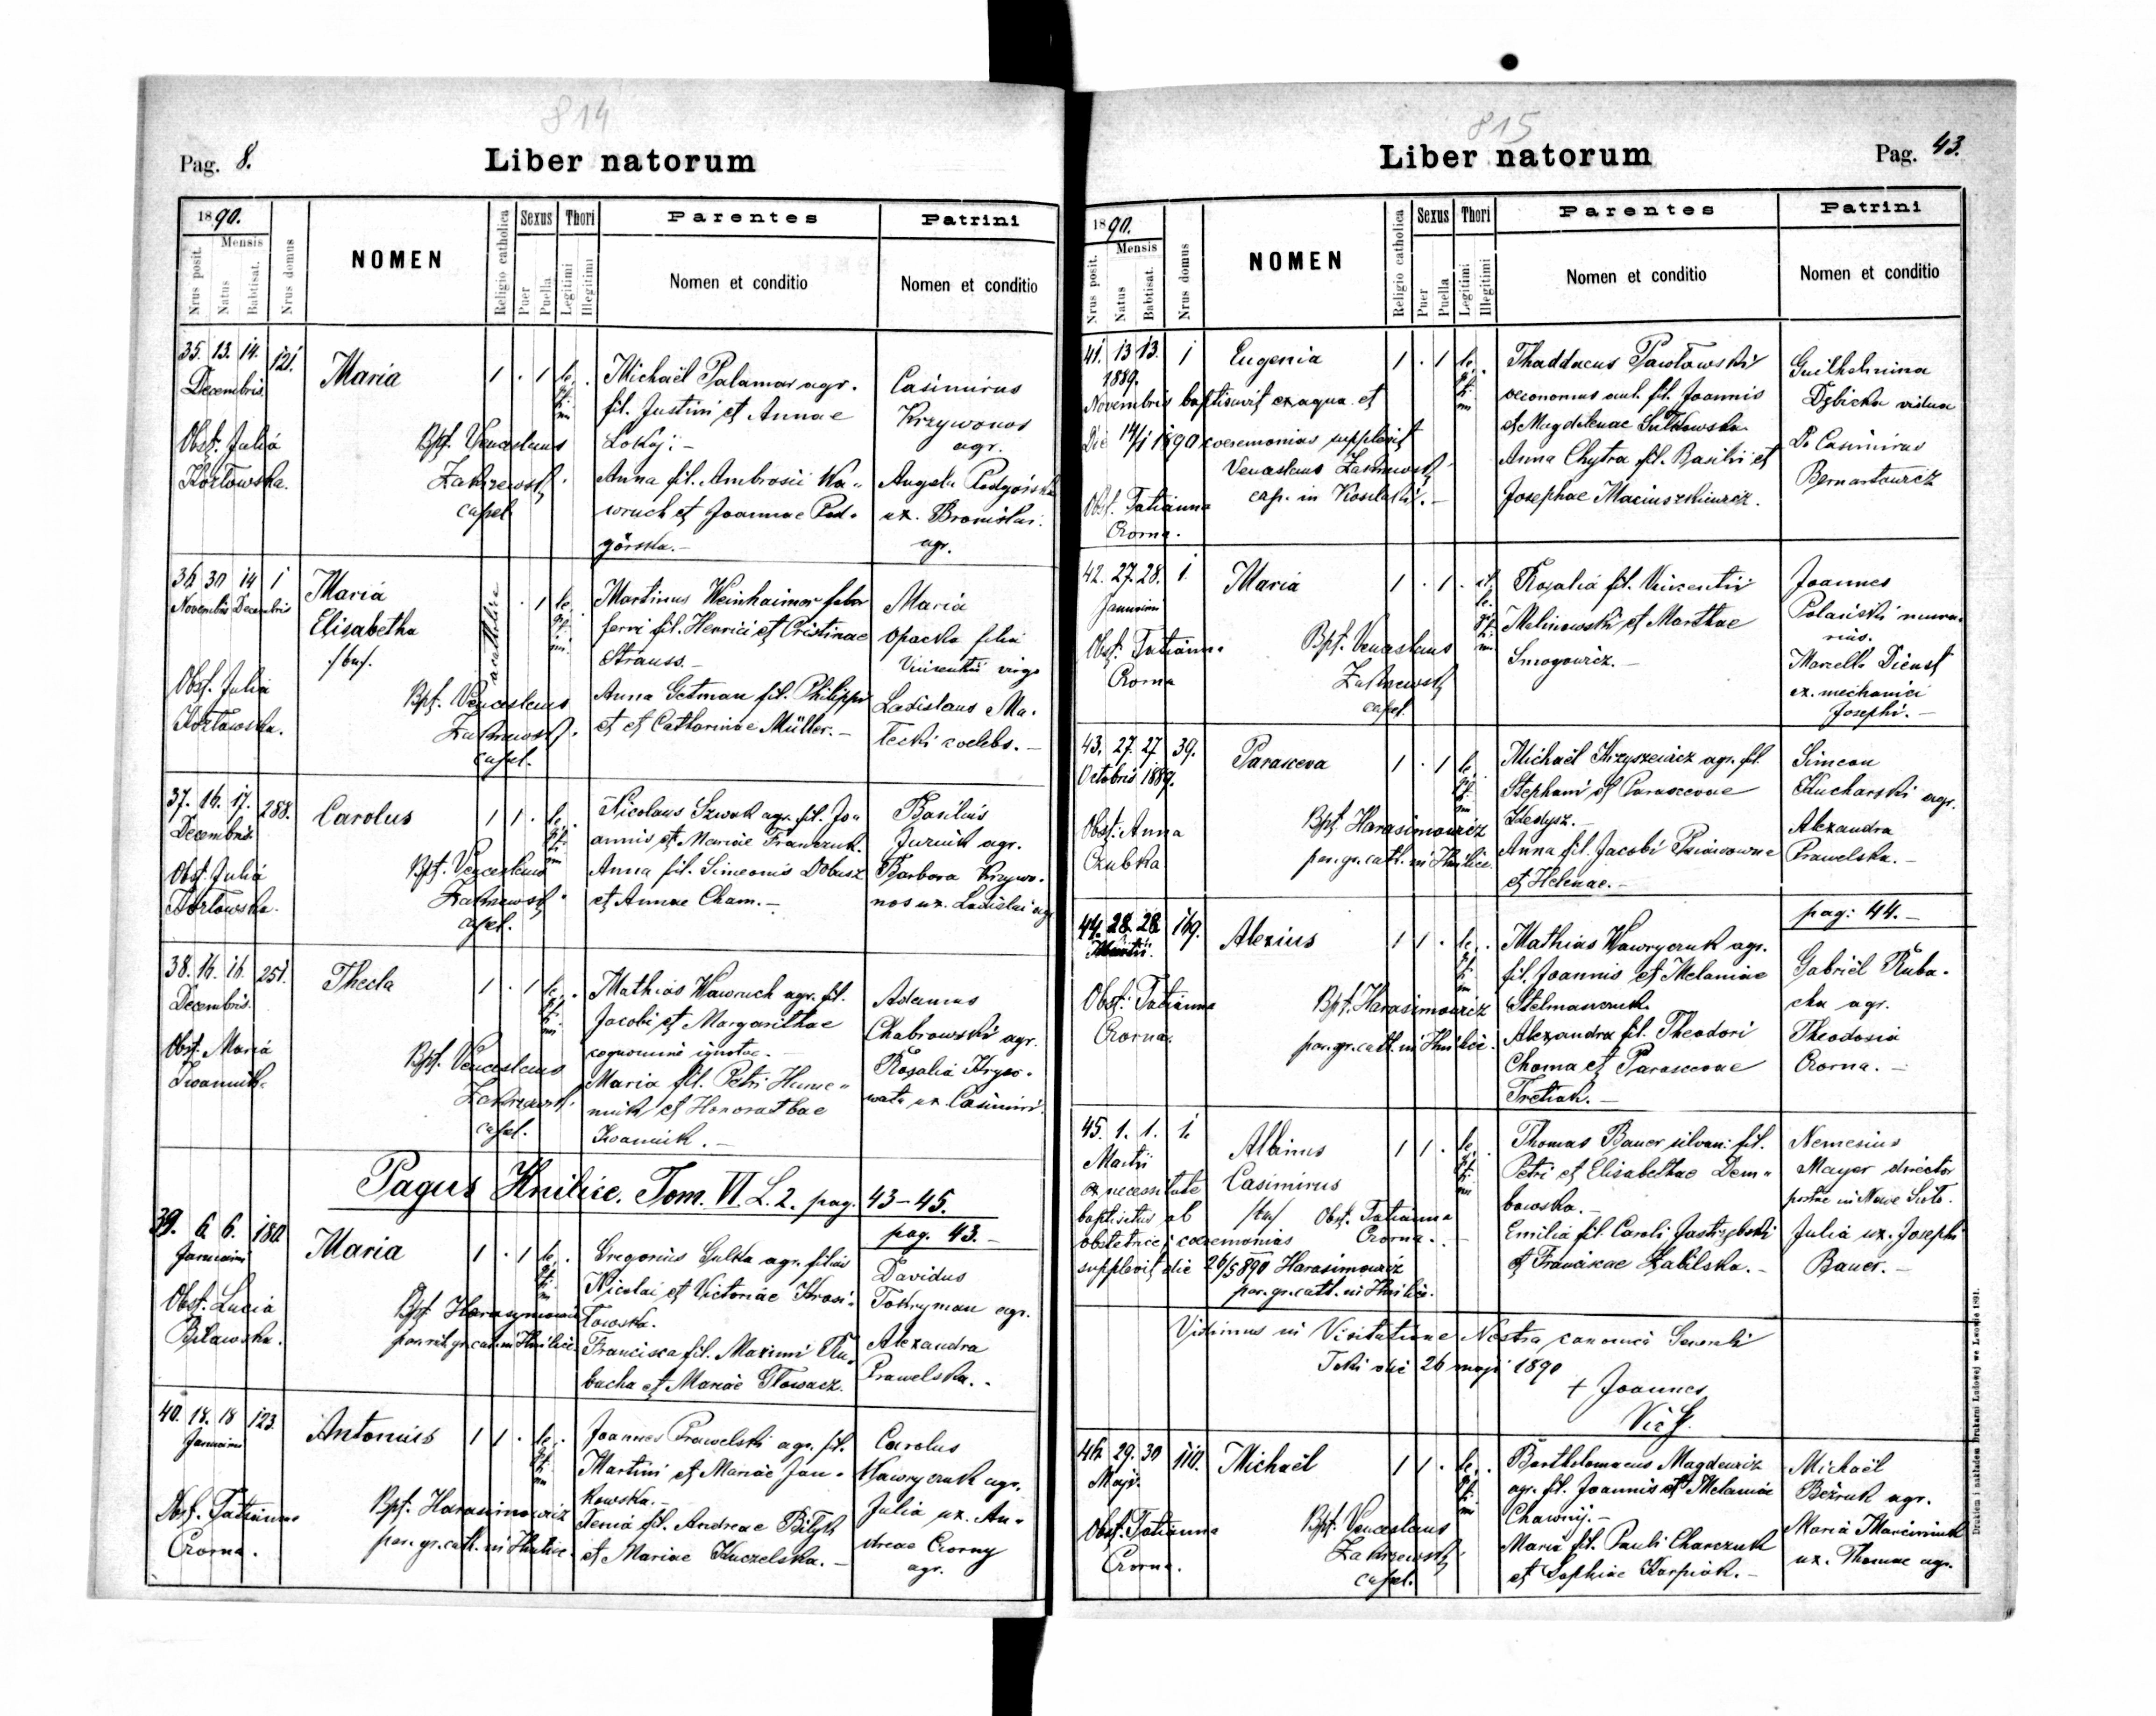 814
Pag. 8.
Liber natorum
1890.
Mensis
Nrus posit.
Natus
Babtisat.
Nrus domus
NOMEN
Religio catholica
Sexus
Puer
Puella
Thori
Legitimi
Illegitimi
Parentes
Nomen et conditio
Patrini
Nomen et conditio
35. 13. 14. 121.
Decembris
Obst. Julia
Kozłowska.
Maria
Bpt. Venceslaus
Zakrzewski
capel.
1 . 1 le gi ti mi
Michaël Palamar agr.
fil. Justini et Annae
Lokaj: -
Anna fil. Ambrosii Wa-
wruch et Joannae Pod-
górska. -
Casimirus
Krzywonos
agr.
Angela Podgórska
ux. Bronislai
agr.
36 30 14 1
Novembris Decembris
Obst. Julia
Kozłowska.
Maria
Elisabetha
/bin/.
Bpt. Venceslaus
Zakrzewski
capel.
acatholicae
. 1 le gi ti mi.
Martinus Weinhaimer faber
ferri fil. Henrici et Cristinae
Strauss. -
Anna Getman fil. Philippi
et et Catharinae Müller. -
Maria
Opacka filia
Vincentii virgo
Ladislaus Ma-
łecki coelebs. -
37. 16. 17. 288.
Decembris
Obst. Julia
Kozłowska.
Carolus
Bpt. Venceslaus
Zakrzewski
capel.
1 1 . le gi ti mi
Nicolaus Szwak agr. fil. Jo-
annis et Mariae Franczuk.
Anna fil. Simeonis Dobusz
et Annae Cham. -
Basilius
Jurcik agr.
Barbara Krzywo-
nos ux. Ladislai agr.
38. 16. 16. 251.
Decembris.
Obst. Maria
Iwaniuk.
Thecla
Bpt. Venceslaus
Zakrzewski
capel.
1 . 1 le gi ti mi
Mathias Wawruch agr. fil.
Jacobi et Margarithae
cognomine ignotae. -
Maria fil. Petri Hume-
niuk et Honorathae
Iwaniuk. -
Adamus
Chabrowski agr.
Rosalia Krywo-
wata ux. Casimiri.
Pagus Hnilice. Tom. VI. L. 2. pag. 43-45.
pag. 43. -
39. 6. 6. 180.
Januarii
Obst. Lucia
Biławska.
Maria
Bpt. Harasymowicz
par. rit. gr. cat. in Hnilice.
1 . 1 le gi ti mi
Gregorius Gulka agr. filius
Nicolai et Victoriae Krasi-
łowska.
Francisca fil. Maximi Ru-
bacha et Mariae Głowacz.
Davidus
Tokryman agr.
Alexandra
Prawelska. -
40. 18. 18 123.
Januarii
Obst. Tatianna
Czorna.
Antonius
Bpt. Harasimowicz
par. gr. cath. in Hnilice.
1 1 . le gi ti mi
Joannes Prawelski agr. fil.
Martini et Mariae Jan-
kowska. -
Xenia fil. Andreae Biłyk
et Mariae Kuczelska. -
Carolus
Wawryczuk agr.
Julia ux. An-
dreae Czorny
agr.
815
Liber natorum
Pag. 43.
1890.
Mensis
Nrus posit.
Natus
Babtisat.
Nrus domus
NOMEN
Religio catholica
Sexus
Puer
Puella
Thori
Legitimi
Illegitimi
Parentes
Nomen et conditio
Patrini
Nomen et conditio
41. 13 13. 1
1889.
Eugenia
Novembris baptisavit ex aqua et
Die 14/1 1890 coeremonias supplevit
Venceslaus Zakrzewski
cap. in Koszlaki. -
Obst. Tatianna
Czorna.
1 . 1 le gi ti mi
Thaddaeus Pawłowski
oeconomus aul. fil. Joannis
et Magdalenae Sułkowska.
Anna Chytra fil. Basilii et
Josephae Maciuszkiewicz.
Guilhelmina
Dębicka vidua
Dr Casimirus
Bernartowicz
42. 27. 28. 1.
Januarii
Obst. Tatianna
Czorna
Maria
Bpt. Venceslaus
Zakrzewski
capel.
1 . 1 . il le gi ti mi
Rosalia fil. Vincentii
Malinowski et Marthae
Smogowicz. -
Joannes
Polański mura-
rius.
Marcella Dienst
ux. mechanici
Josephi. -
43. 27. 27 39.
Octobris 1889.
Obst. Anna
Czubka
Parasceva
Bpt. Harasimowicz
par. gr. cath. in Hnilice.
1 . 1 le gi ti mi
Michaël Krzyszewicz agr. fil.
Stephani et Parascevae
Kedysz. -
Anna fil. Jacobi
et Helenae. -
Simeon
Kucharski agr.
Alexandra
Prawelska. -
pag: 44. -
44. 28. 28 169.
Martii.
Obst: Tatianna
Czorna.
Alexius
Bpt. Harasimowicz
par. gr. cath. in Hnilice.
1 1 . le gi ti mi
Mathias Wawryczuk agr.
fil. Joannis et Melaniae
Stelmaszczuk
Alexandra fil. Theodori
Choma et Parascevae
Tretiak. -
Gabriël Ruba-
cha agr.
Theodosia
Czorna. -
45. 1. 1. 1.
Martii
Albinus
Casimirus
/bin/ Obst. Tatianna
Czorna. -
ex necessitate
baptisatus ab
obstetrice; coeremonias
supplevit die 26/5 890 Harasimowicz
par. gr. cath. in Hnilice.
1 1 . le gi ti mi
Thomas Bauer silvan: fil.
Petri et Elisabethae Dem-
bowska. -
Emilia fil. Caroli Jastrzębski
et Franciscae Zabilska. -
Nemesius
Mayer director
postae in Nowe Sioło.
Julia ux. Josephi
Bauer. -
Vidimus in Visitatione Nostra canonica Generali
Toki die 26 maji 1890
+ Joannes
46 29. 30 110.
Maji.
Obst. Tatianna
Czorna.
Michaël
Bpt. Venceslaus
Zakrzewski
capel.
1 1 . le gi ti mi
Barthelomaeus Magdewicz
agr. fil. Joannis et Melaniae
Chawnij. -
Maria fil. Pauli Charczuk
et Sophiae Karpiak. -
Michaël
Bezruk agr.
Maria Marciniuk
ux. Thomae agr.
Drukiem i nakładem Drukarni Ludowej we Lwowie 1891.